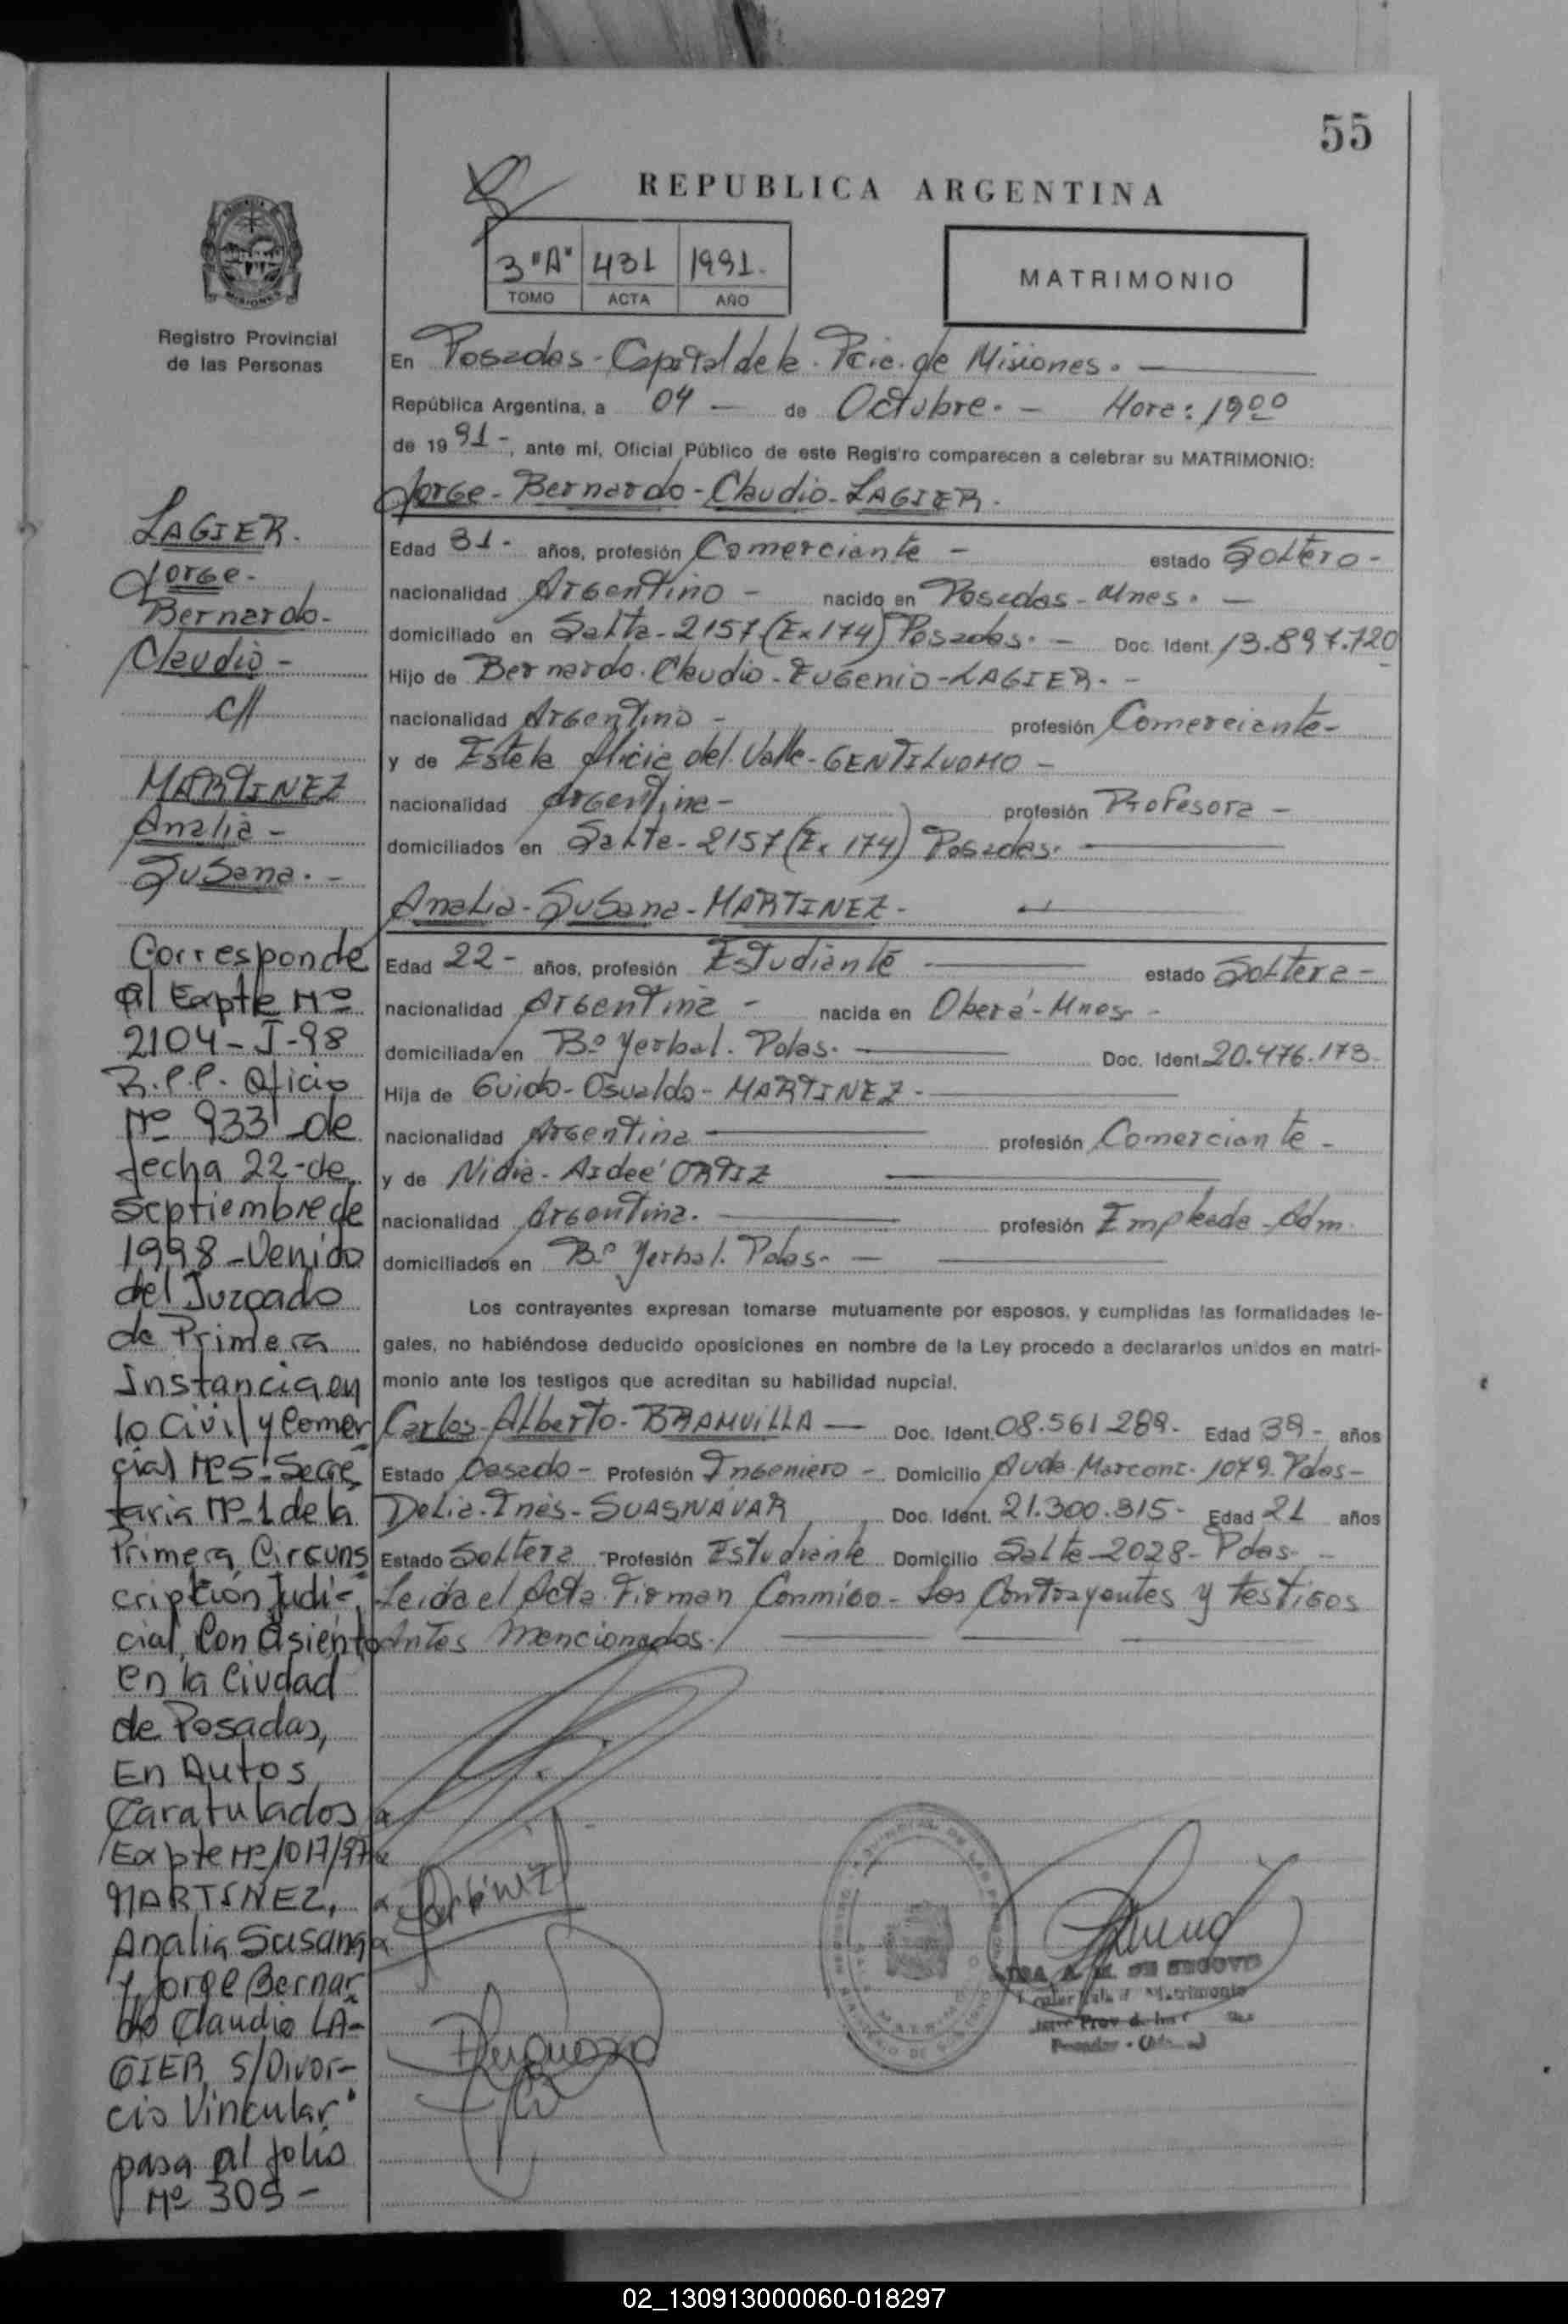 55
REPUBLICA ARGENTINA
3 "A" 431 1991.
TOMO ACTA AÑO
MATRIMONIO
Registro Provincial
de las Personas
En Posadas - Capital de la Pcia. de Misiones. -
República Argentina, a 04 - de Octubre. - Hora: 19 00
de 19 91 -, ante mí, Oficial Público de este Registro comparecen a celebrar su MATRIMONIO:
Jorge - Bernardo - Claudio - LAGIER.
Edad 31 - años, profesión Comerciante - estado Soltero -
nacionalidad Argentino - nacido en Posadas - Mnes. -
domiciliado en Salta - 2157 (Ex 174) Posadas. - Doc. Ident. 13.897.720
Hijo de Bernardo. Claudio - Eugenio - LAGIER. -
nacionalidad Argentino - profesión Comerciante -
y de Estela Alicia del Valle - GENTILUOMO -
nacionalidad Argentina - profesión Profesora -
domiciliados en Salta - 2157 (Ex 174) Posadas.
Analia - Susana - MARTINEZ -
Edad 22 - años, profesión Estudiante estado Soltera -
nacionalidad Argentina - nacida en Oberá - Mnes -
domiciliada en Bº Yerbal. Pdas. Doc. Ident. 20.476.173.
Hija de Guido - Osvaldo - MARTINEZ -
nacionalidad Argentina profesión Comerciante -
y de Nidia - Aideé ORTIZ
nacionalidad Argentina. profesión Empleada - Adm.
domiciliados en Bº Yerbal. Pdas. -
Los contrayentes expresan tomarse mutuamente por esposos, y cumplidas las formalidades le-
gales, no habiéndose deducido oposiciones en nombre de la Ley procedo a declararlos unidos en matri-
monio ante los testigos que acreditan su habilidad nupcial.
Carlos - Alberto - BRAMUILLA Doc. Ident. 08.561.289 - Edad 39 - años
Estado Casado - Profesión Ingeniero - Domicilio Avda. Marconi - 1079. Pdas -
Delia - Inés - SUASNAVAR Doc. Ident. 21.300.315 - Edad 21 años
Estado Soltera Profesión Estudiante Domicilio Salta - 2028 - Pdas -
Leida el Acta Firman Conmigo - Los Contrayentes y Testigos
Antes Mencionados.
LAGIER.
Jorge -
Bernardo -
Claudio -
c//
MARTINEZ
Analia -
Susana. -
Corresponde
al Expte Nº
2104 - J - 98
R.P.P. Oficio
Nº 933 - de
fecha 22 - de
Septiembre de
1998 - Venido
del Juzgado
de Primera
Instancia en
lo Civil y Comer
cial Nº 5 - Secre
taria Nº 1 de la
Primera Circuns
cripción Judi-
cial, Con asiento
en la Ciudad
de Posadas,
En Autos
Caratulados
Expte Nº 1017/97
MARTINEZ,
Analia Susana
y Jorge Bernar
do Claudio LA-
GIER S/Divor-
cio Vincular
pasa al folio
Nº 305 -
02_130913000060-018297